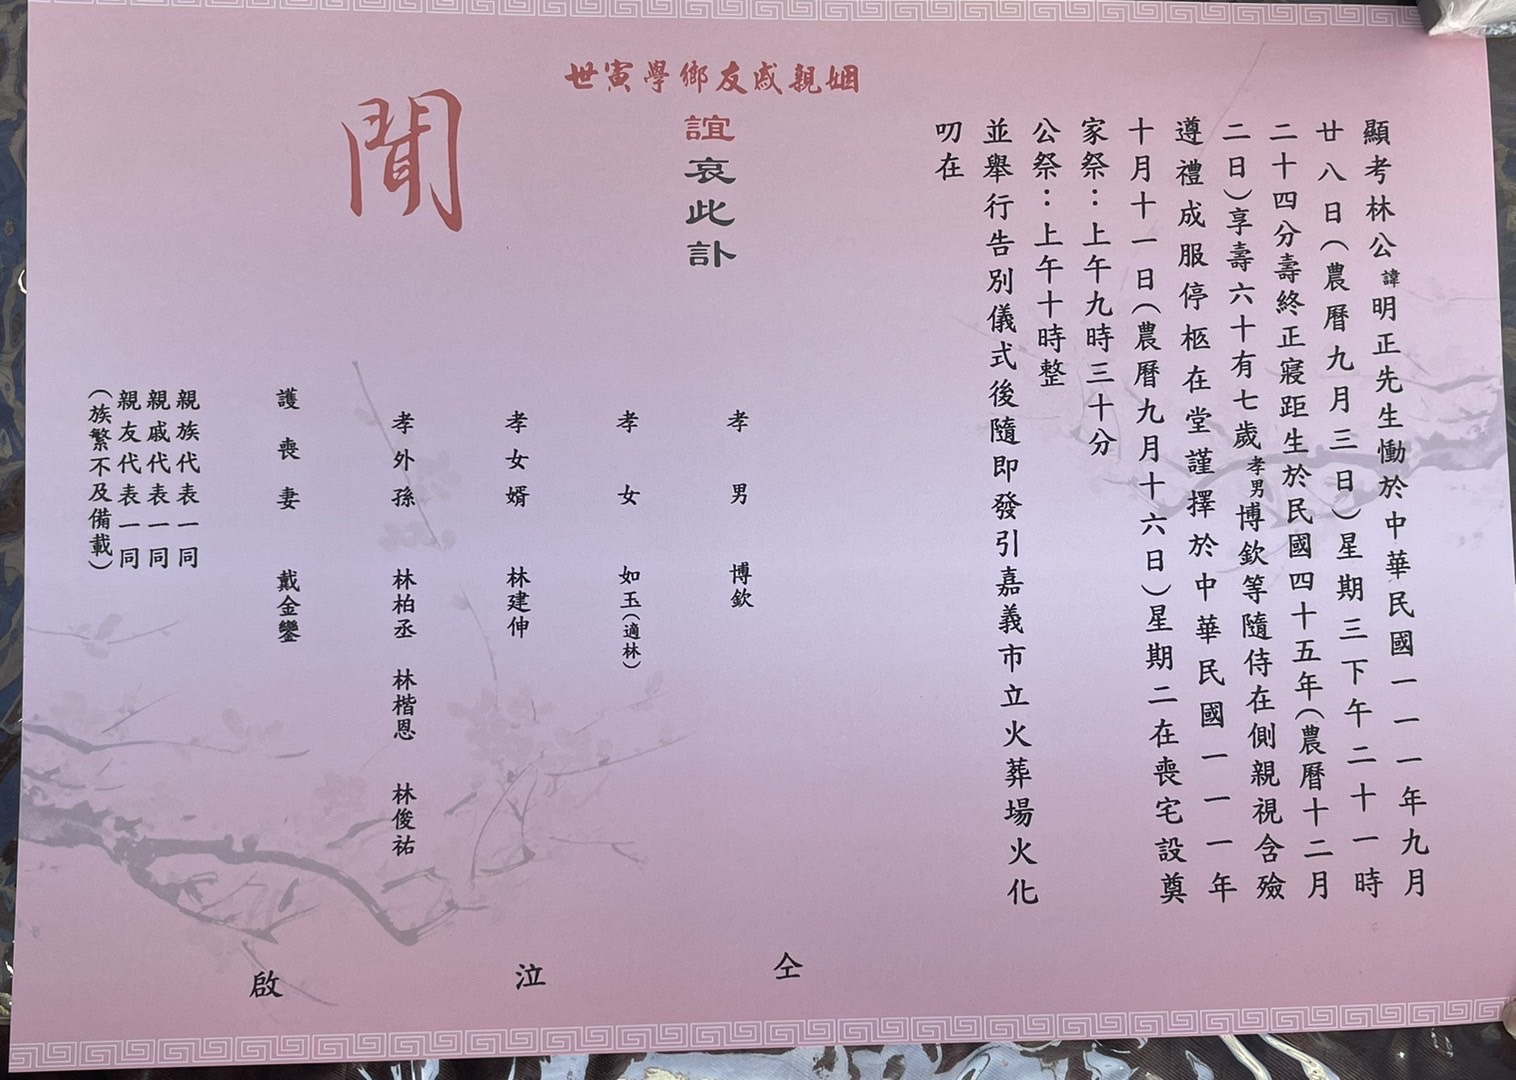 顯考林公諱明正先生慟於中華民國一一一年九月
廿八日(農曆九月三日)星期三下午二十一時
二十四分壽終正寢距生於民國四十五年(農曆十二月
二日)享壽六十有七歲孝男博欽等隨侍在側親視含殮
遵禮成服停柩在堂謹擇於中華民國一一一年
十月十一日(農曆九月十六日)星期二在喪宅設奠
家祭：上午九時三十分
公祭：上午十時整
並舉行告別儀式後隨即發引嘉義市立火葬場火化
叨在
姻親戚友鄉學寅世
誼哀此訃
聞
孝男 博欽
孝女 如玉(適林)
孝女婿 林建伸
孝外孫 林柏丞 林楷恩 林俊祐
護喪妻 戴金鑾
親族代表一同
親戚代表一同
親友代表一同
(族繁不及備載)
仝 泣 啟